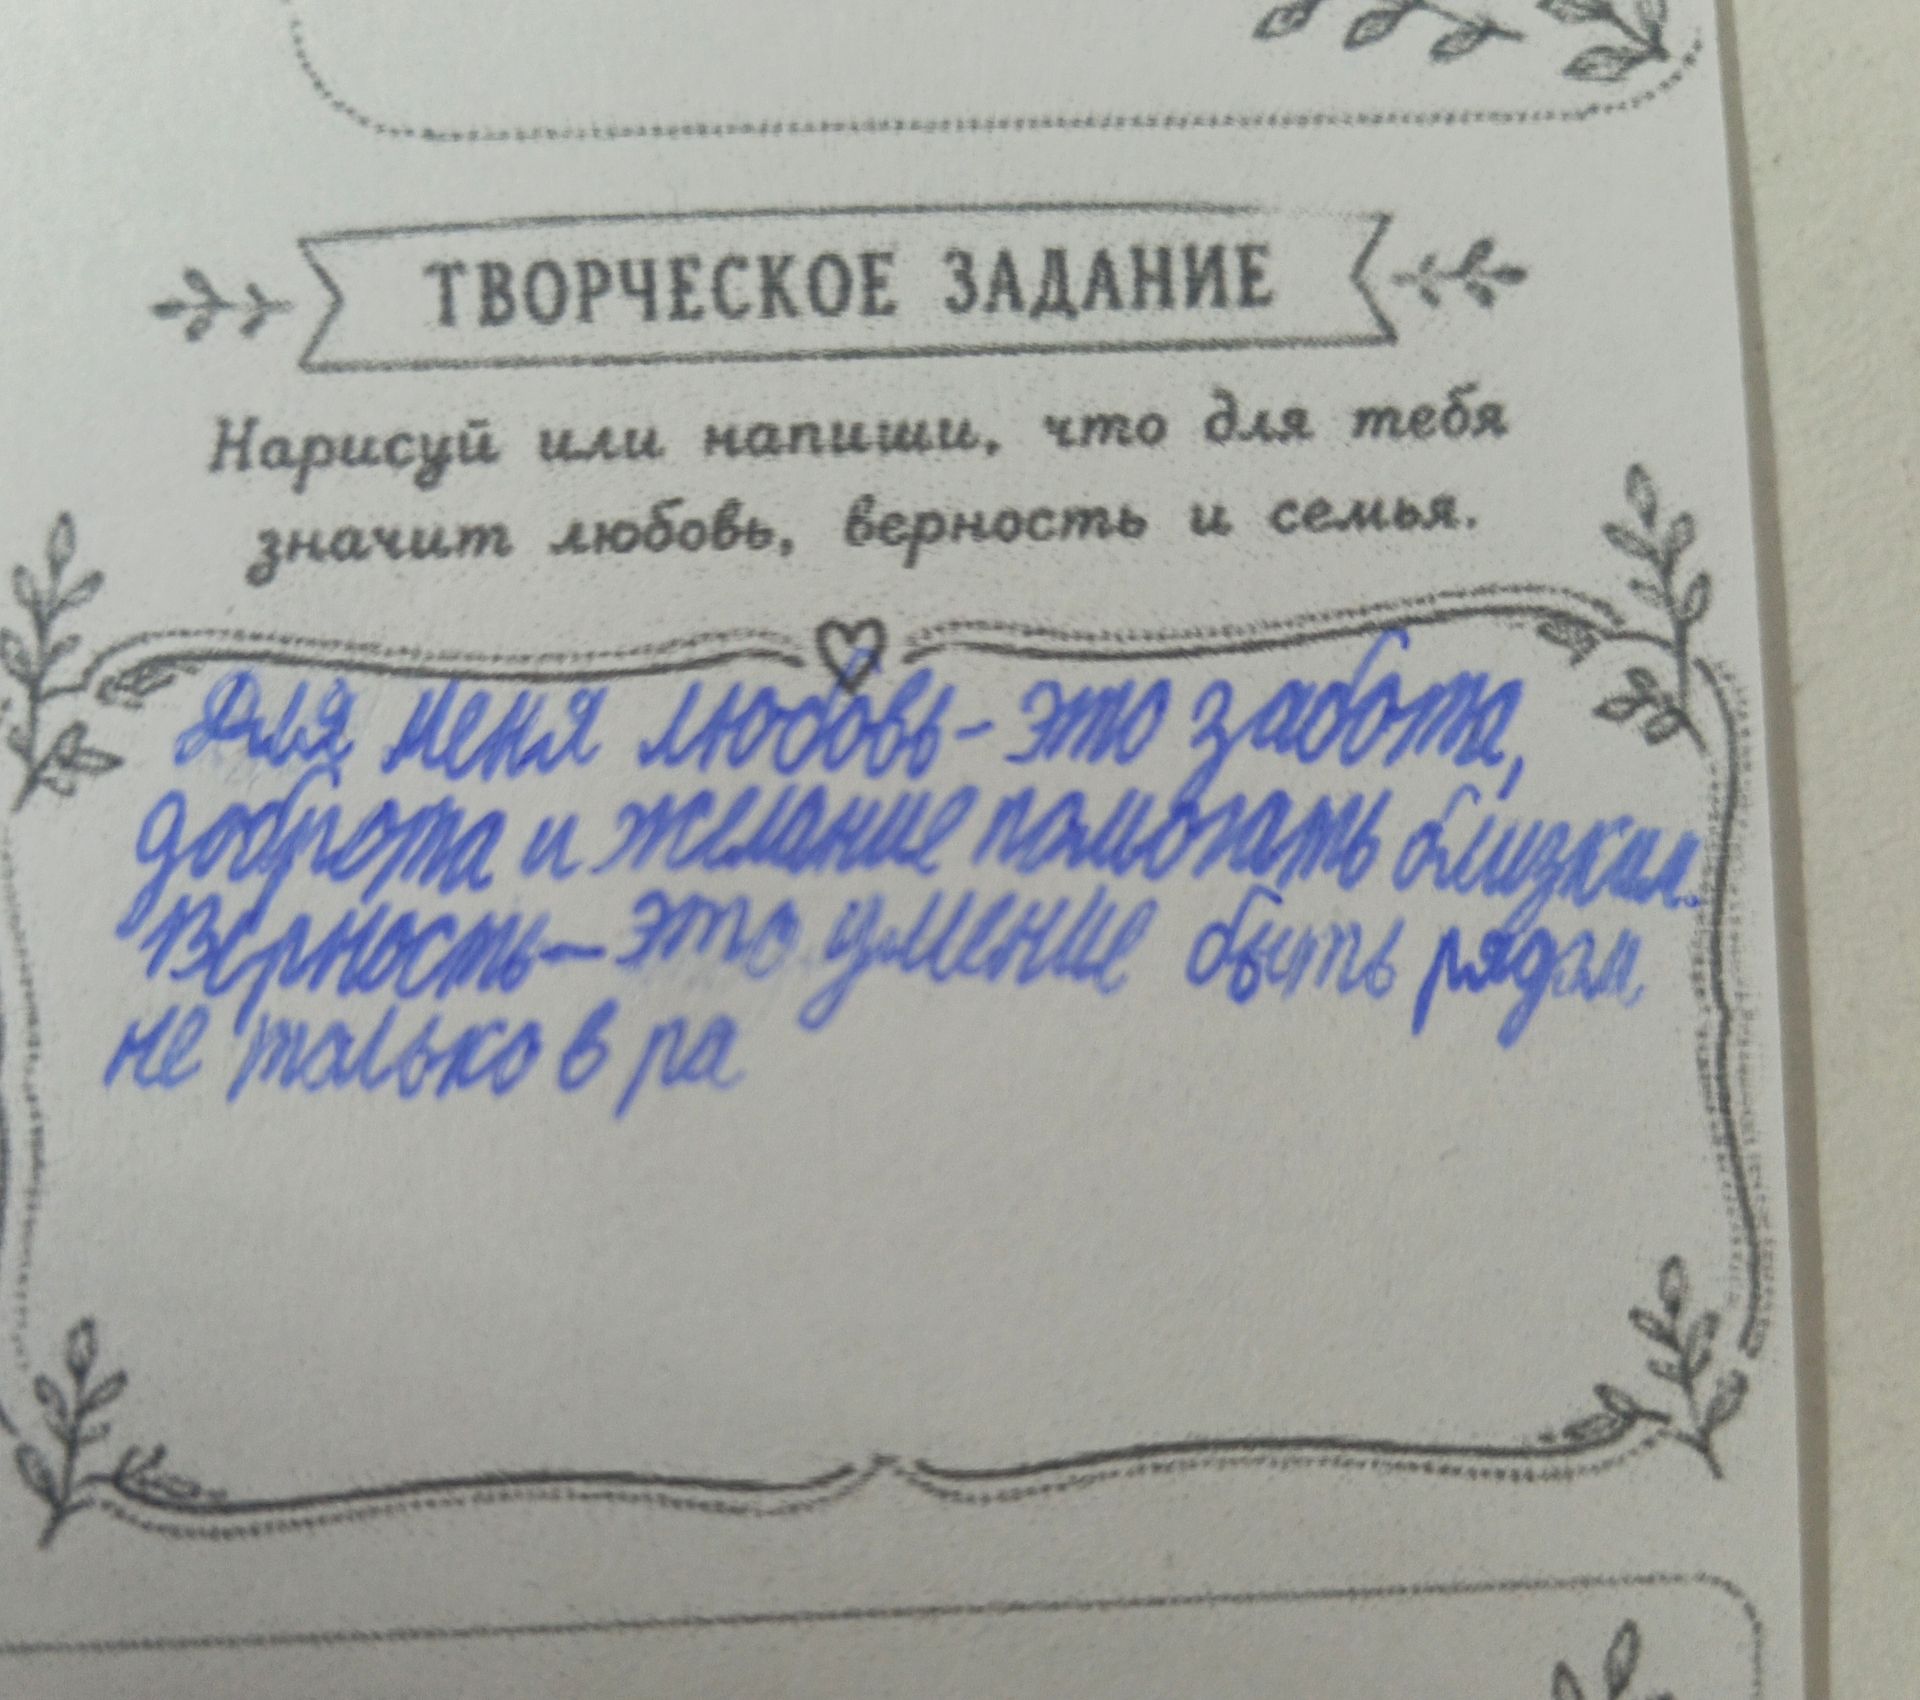 ТВОРЧЕСКОЕ ЗАДАНИЕ
Нарисуй или напиши, что для тебя
значит любовь, верность и семья.
Для меня любовь - это забота,
доброта и желание помогать близким.
Верность - это умение быть рядом
не только в ра